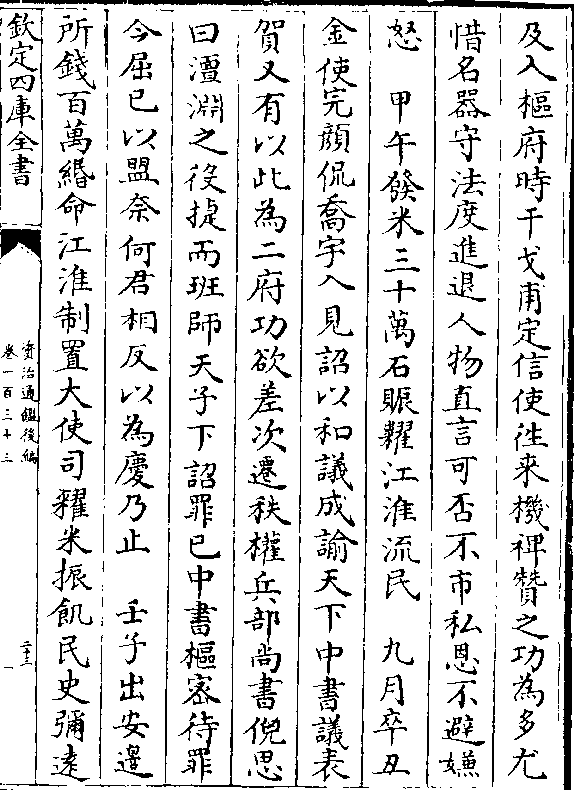 及入樞府時干戈甫定信使徃来機神贊之功為多尤
惜名器守法度進退人物直言可否不市私恩不避嫌
怒　甲午發米三十萬石賑糶江淮流民　九月卒丑
金使完顔侃喬宇入見詔以和議成諭天下中書議表
賀又有以此為二府功欲差次遷秩權兵部尚書倪思
曰澶淵之役捷而班師天子下詔罪已中書樞宻待罪
今屈已以盟奈何君相反以為慶乃止　壬子出安邊
所錢百萬緡命江淮制置大使司糴米振飢民史彌逺
欽定四庫全書
資治通鑑後編
卷一百三十三
二十三